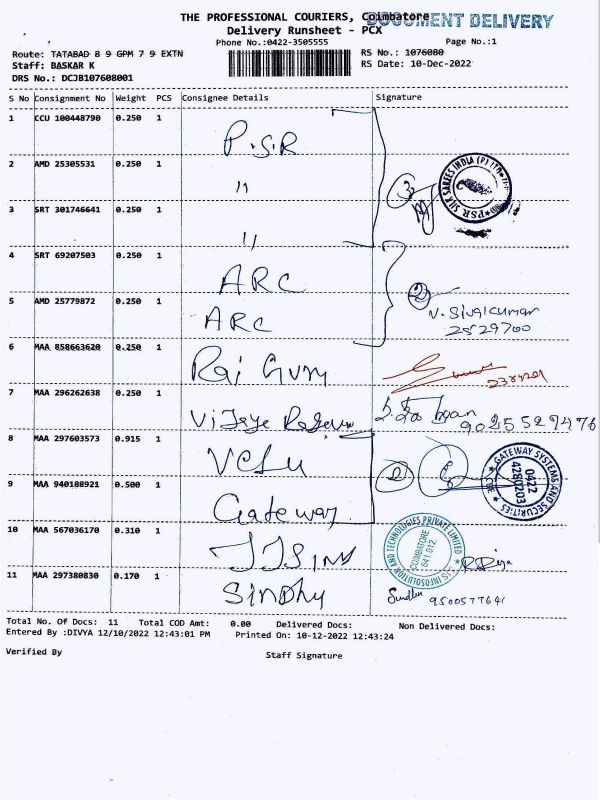 THE PROFESSIONAL COURIERS, Coimbatore
DOCUMENT DELIVERY
Delivery Runsheet - PCX
Phone No.:0422-3505555 Page No.:1
Route: TATABAD 8 9 GPM 7 9 EXTN RS No.: 1076080
Staff: BASKAR K RS Date: 10-Dec-2022
DRS No.: DCJB107608001
S No Consignment No Weight PCS Consignee Details Signature
1 CCU 100448790 0.250 1 P.S.R
2 AMD 25305531 0.250 1 11 3 PSR SILK SAREES INDIA (P)
3 SRT 301746641 0.250 1 11
4 SRT 69207503 0.250 1 ARC 2
5 AMD 25779872 0.250 1 ARC V. Sivalkumar
2529700
6 MAA 858663620 0.250 1 Raj Gury
7 MAA 296262638 0.250 1 Vijaye 9025527476
8 MAA 297603573 0.915 1 VCLU 2 GATEWAY SYSTEMS AND SECURITIES
0422
4280203
CBE
9 MAA 940188921 0.500 1 Gateway
10 MAA 567036170 0.310 1 INFOSOLUTION AND TECHNOLOGIES PRIVATE LIMITED
COIMBATORE
641 012
11 MAA 297380830 0.170 1 Sindhy 9500577641
Total No. Of Docs: 11 Total COD Amt: 0.00 Delivered Docs: Non Delivered Docs:
Entered By :DIVYA 12/10/2022 12:43:01 PM Printed On: 10-12-2022 12:43:24
Verified By Staff Signature